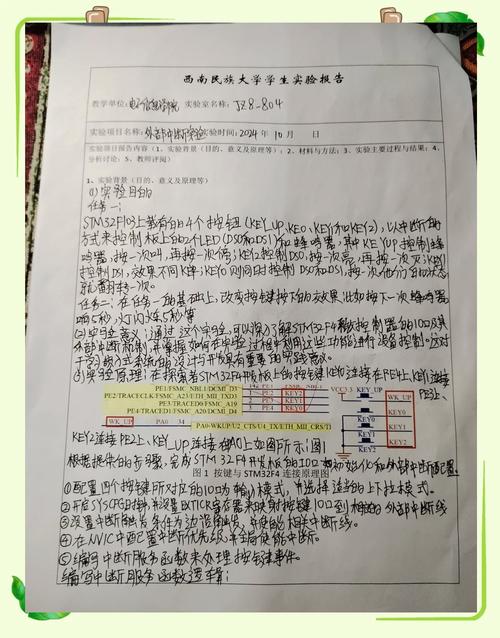 西南民族大学学生实验报告
教学单位:电子信息学院 实验室名称:JZ8-804
实验项目名称:外部中断实验 实验时间:2024年10月 日
实验项目报告内容(1、实验背景(目的、意义及原理等);2、材料与方法;3、实验主要过程与结果;4、
分析讨论;5、教师评阅)
1、实验背景(目的、意义及原理等)
(1)实验目的
任务一:
STM32F103上载有的4个按钮(KEY_UP,KE0、KEY1和KEY2),以中断的
方式来控制板上的2个LED(DS0和DS1)和蜂鸣器,其中KEYUP控制蜂
鸣器,按一次叫,再按一次停;KEY2控制DS0,按一次亮,再按一次灭;KEY1
控制DS1,效果不同KEY2;KEY0则同时控制DS0和DS1,按一次他们的状态
就翻转一次。
任务二:在任务一的基础上,改变按键按下的效果,比如按下一次,蜂鸣器
响5秒,灯闪烁5秒等
(2)实验意义:通过这个实验,可以深入了解STM32F4微控制器的IO口及
外部中断机制,并掌握如何在实验过程中利用这些功能进行设备控制。这对
于嵌入式系统的设计与开发具有重要的实践意义。
(3)实验原理:在探索者STM32F4开发板上的按键KEY0连接在PE4上、KEY1连接在
PE3上、
PE1/FSMC_NBL1/DCMI_D3
PE2/TRACECLK/FSMC_A23/ETH_MII_TXD3
PE3/TRACED0/FSMC_A19
PE4/TRACED1/FSMC_A20/DCMI_D4
WK_UP PA0 34 PA0-WKUP/U2_CTS/U4_TX/ETH_MII_CRS/TI
PE2 KEY2
PE3 KEY1
PE4 KEY0
VCC3.3 KEY_UP WK_UP
KEY0 KEY0
KEY1 KEY1
KEY2 KEY2
KEY2连接PE2上、KEY_UP连接在PA0上如图所示:图1
图 1 按键与 STM32F4 连接原理图
根据提供的步骤,完成STM32F4开发板的IO口初始化和外部中断配置
①配置四个按键所对应的IO口为输入模式,并选择适当的上下拉模式。
②开启SYSCFG时钟,并设置EXTICR寄存器来映射按键IO口到相应的外部中断线
③设置中断触发条件为边沿触发,并使能相关中断线。
④在NVIC中配置中断优先级,并全局使能中断。
⑤编写中断服务函数来处理按键事件。
编写中断服务函数逻辑: